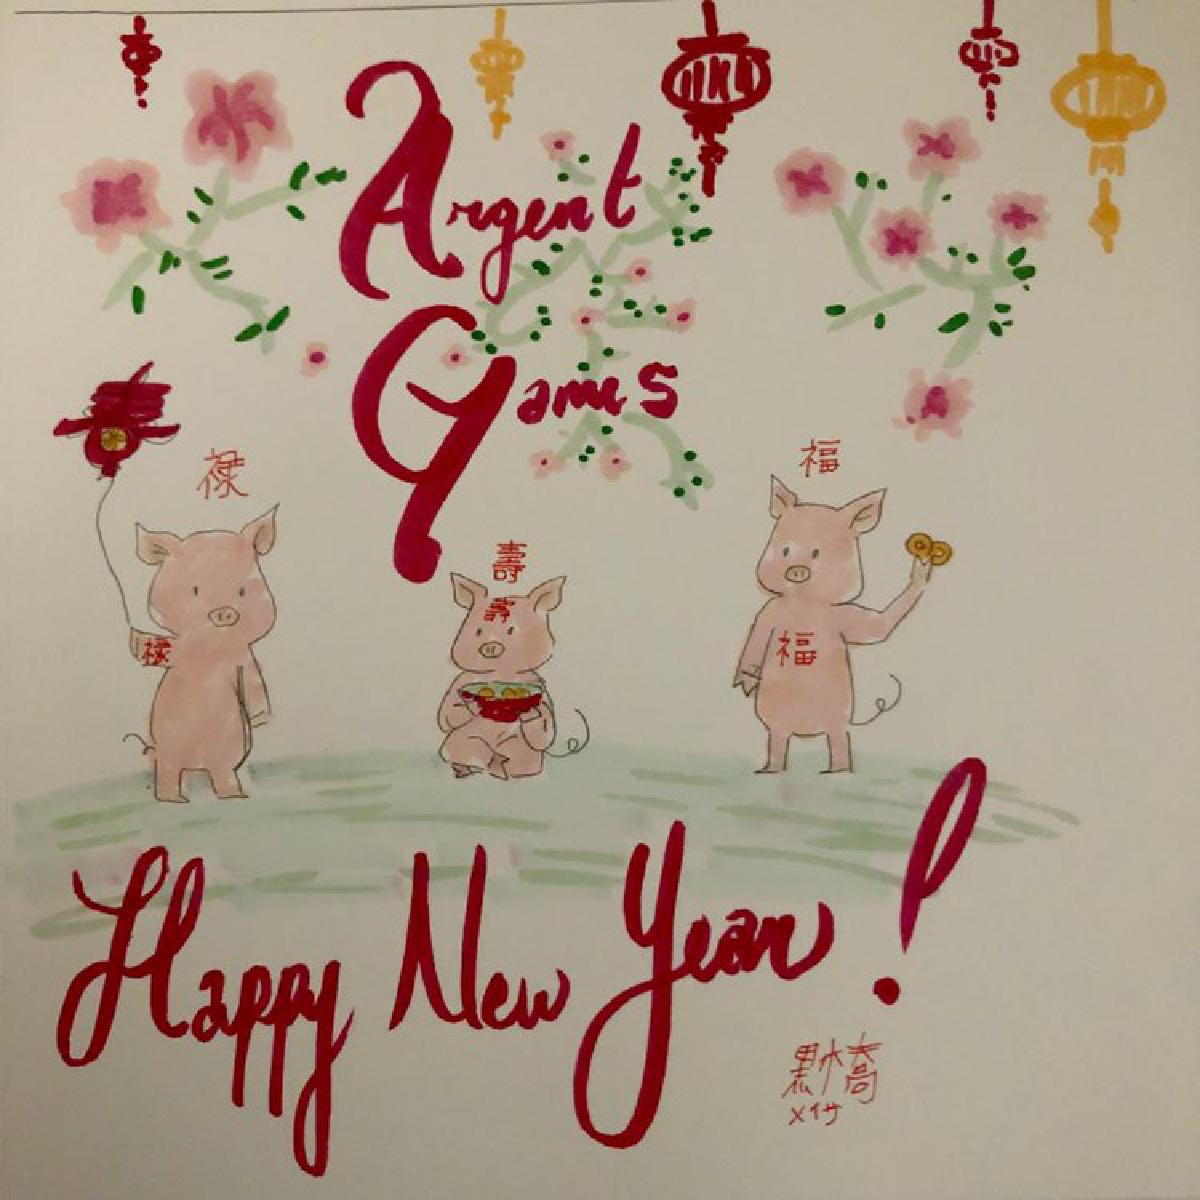 Argent
Games
禄
福
壽
壽
禄
福
Happy New Year!